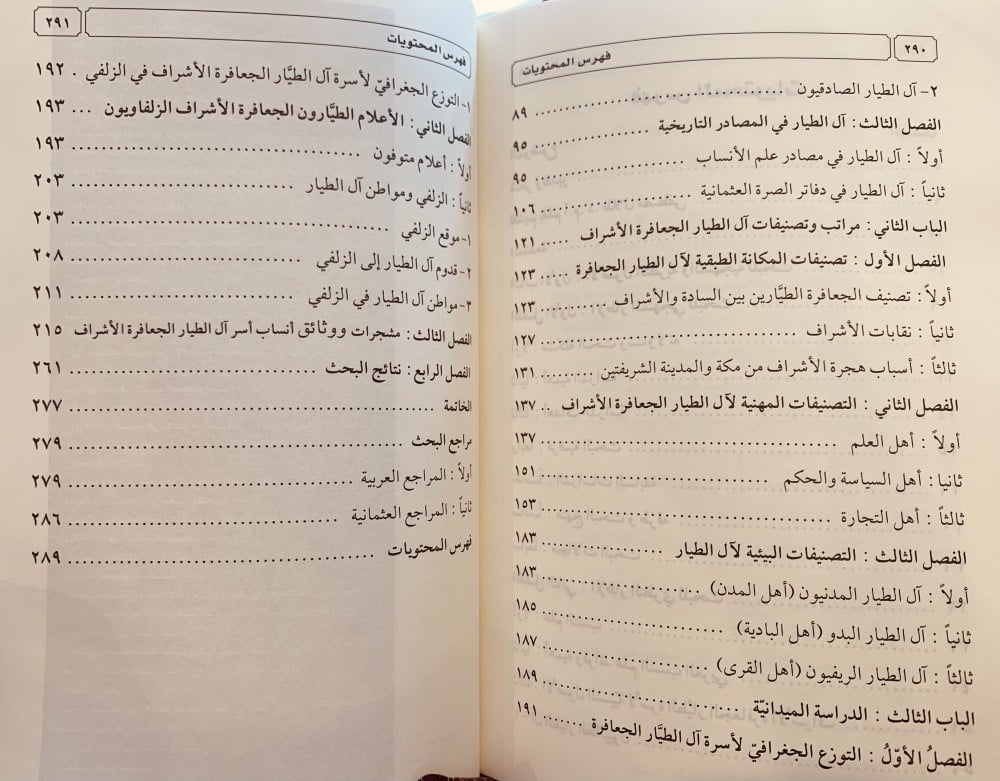 ٢٩٠
فهرس المحتويات
٢- آل الطيار الصادقيون ........ ٨٩
الفصل الثالث: آل الطيار في المصادر التاريخية ........ ٩٥
أولاً : آل الطيار في مصادر علم الأنساب ........ ٩٥
ثانياً : آل الطيار في دفاتر الصرة العثمانية ........ ١٠٦
الباب الثاني: مراتب وتصنيفات آل الطيار الجعافرة الأشراف ..... ١٢١
الفصل الأول: تصنيفات المكانة الطبقية لآل الطيار الجعافرة ..... ١٢٣
أولاً: تصنيف الجعافرة الطيَّارين بين السادة والأشراف ........ ١٢٣
ثانياً : نقابات الأشراف ........ ١٢٧
ثالثاً : أسباب هجرة الأشراف من مكة والمدينة الشريفتين ........ ١٣١
الفصل الثاني: التصنيفات المهنية لآل الطيار الجعافرة الأشراف .. ١٣٧
أولاً : أهل العلم ........ ١٣٧
ثانيا : أهل السياسة والحكم ........ ١٥١
ثالثاً : أهل التجارة ........ ١٥٣
الفصل الثالث : التصنيفات البيئية لآل الطيار ........ ١٨٣
أولاً : آل الطيار المدنيون (أهل المدن) ........ ١٨٣
ثانياً : آل الطيار البدو (أهل البادية) ........ ١٨٥
ثالثاً : آل الطيار الريفيون (أهل القرى) ........ ١٨٧
الباب الثالث : الدراسة الميدانيّة ........ ١٨٩
الفصلُ الأوّلُ : التوزع الجغرافيّ لأسرة آل الطيَّار الجعافرة ....... ١٩١
فهرس المحتويات
٢٩١
١- التوزع الجغرافيّ لأسرة آل الطيَّار الجعافرة الأشراف في الزلفي . ١٩٢
الفصل الثاني: الأعلام الطيَّارون الجعافرة الأشراف الزلفاويون ... ١٩٣
أولاً : أعلام متوفون ........ ١٩٣
ثانياً : الزلفي ومواطن آل الطيار ........ ٢٠٣
١- موقع الزلفي ........ ٢٠٣
٢- قدوم آل الطيار إلى الزلفي ........ ٢٠٨
٣- مواطن آل الطيار في الزلفي ........ ٢١١
الفصل الثالث: مشجرات ووثائق أنساب أسر آل الطيار الجعافرة الأشراف ٢١٥
الفصل الرابع: نتائج البحث ........ ٢٦١
الخاتمة ........ ٢٧٧
مراجع البحث ........ ٢٧٩
أولاً: المراجع العربية ........ ٢٧٩
ثانياً: المراجع العثمانية ........ ٢٨٦
فهرس المحتويات ........ ٢٨٩